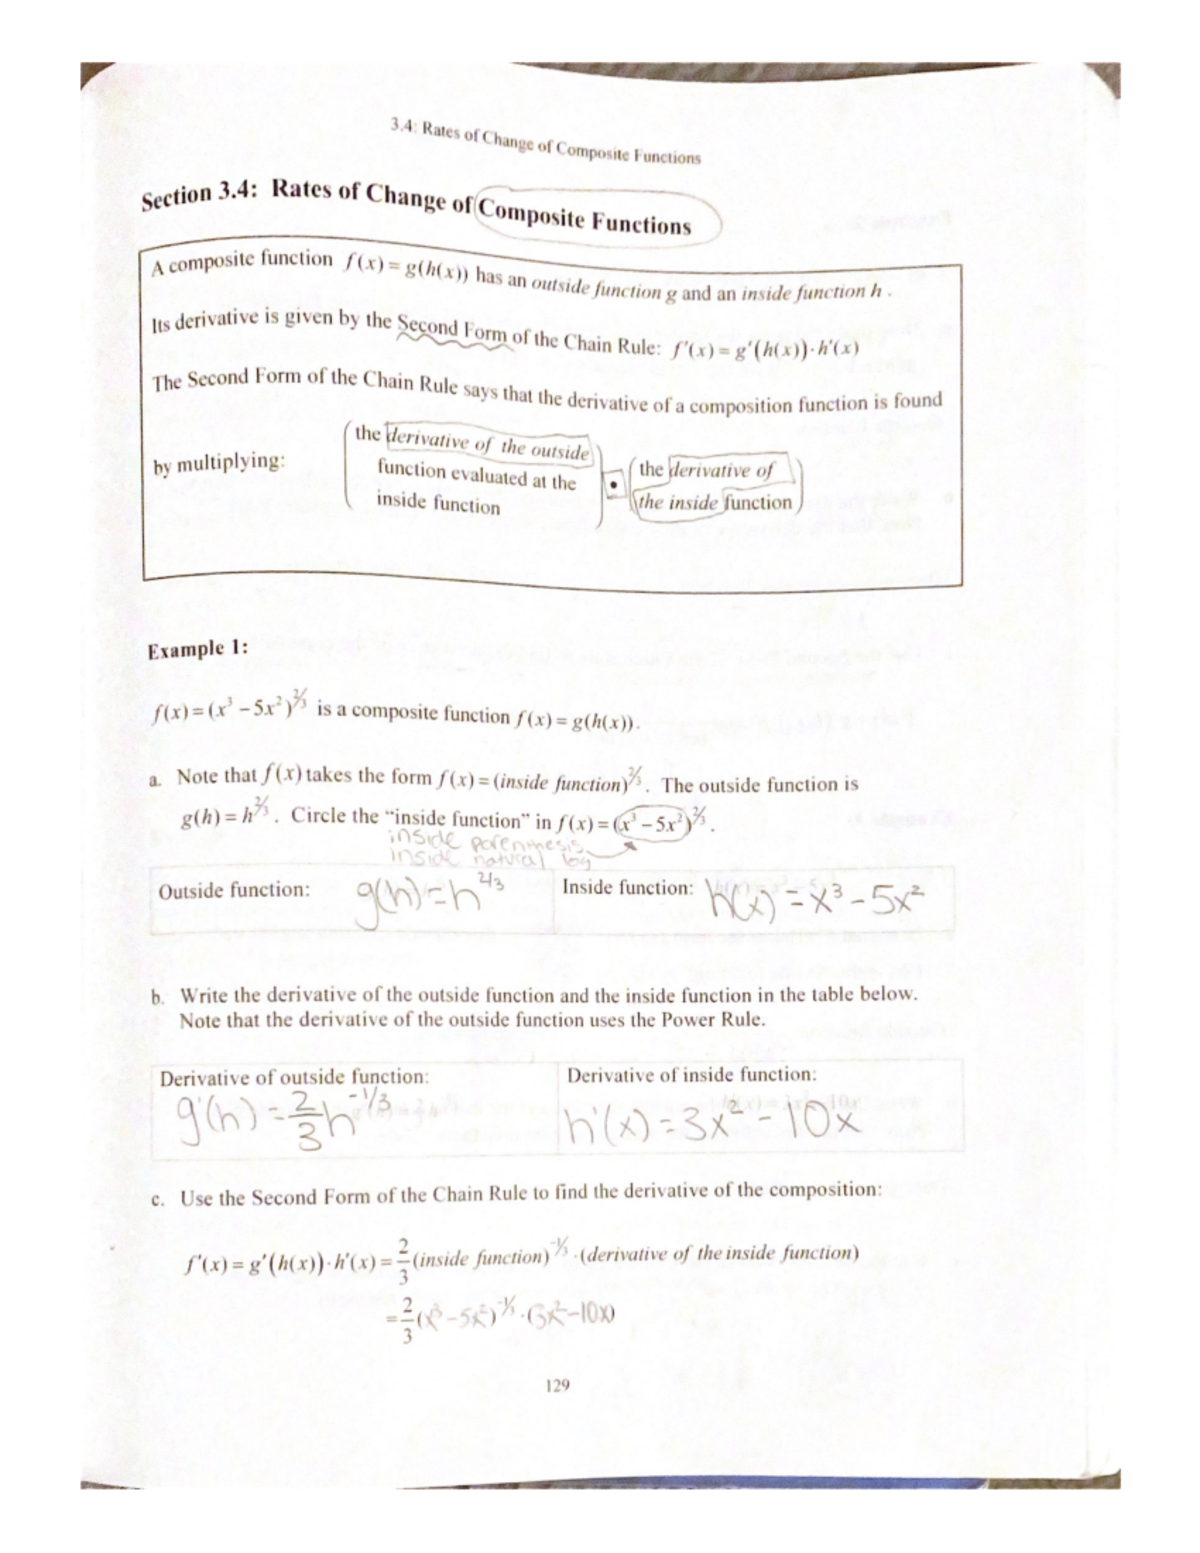 3.4: Rates of Change of Composite Functions
Section 3.4: Rates of Change of Composite Functions
A composite function f(x) = g(h(x)) has an outside function g and an inside function h .
Its derivative is given by the Second Form of the Chain Rule: f'(x) = g'(h(x))·h'(x)
The Second Form of the Chain Rule says that the derivative of a composition function is found
by multiplying: (the derivative of the outside function evaluated at the inside function) • (the derivative of the inside function)
Example 1:
f(x) = (x³ − 5x²)^2/3 is a composite function f(x) = g(h(x)).
a. Note that f(x) takes the form f(x) = (inside function)^2/3. The outside function is
g(h) = h^2/3. Circle the “inside function” in f(x) = (x³ − 5x²)^2/3.
inside parenthesis
inside natural log
Outside function: g(h) = h^2/3 Inside function: h(x) = x³ − 5x²
b. Write the derivative of the outside function and the inside function in the table below.
Note that the derivative of the outside function uses the Power Rule.
Derivative of outside function: Derivative of inside function:
g'(h) = 2/3 h^-1/3 h'(x) = 3x² − 10x
c. Use the Second Form of the Chain Rule to find the derivative of the composition:
f'(x) = g'(h(x))·h'(x) = 2/3 (inside function)^-1/3 · (derivative of the inside function)
= 2/3 (x³ − 5x²)^-1/3 · (3x² − 10x)
129